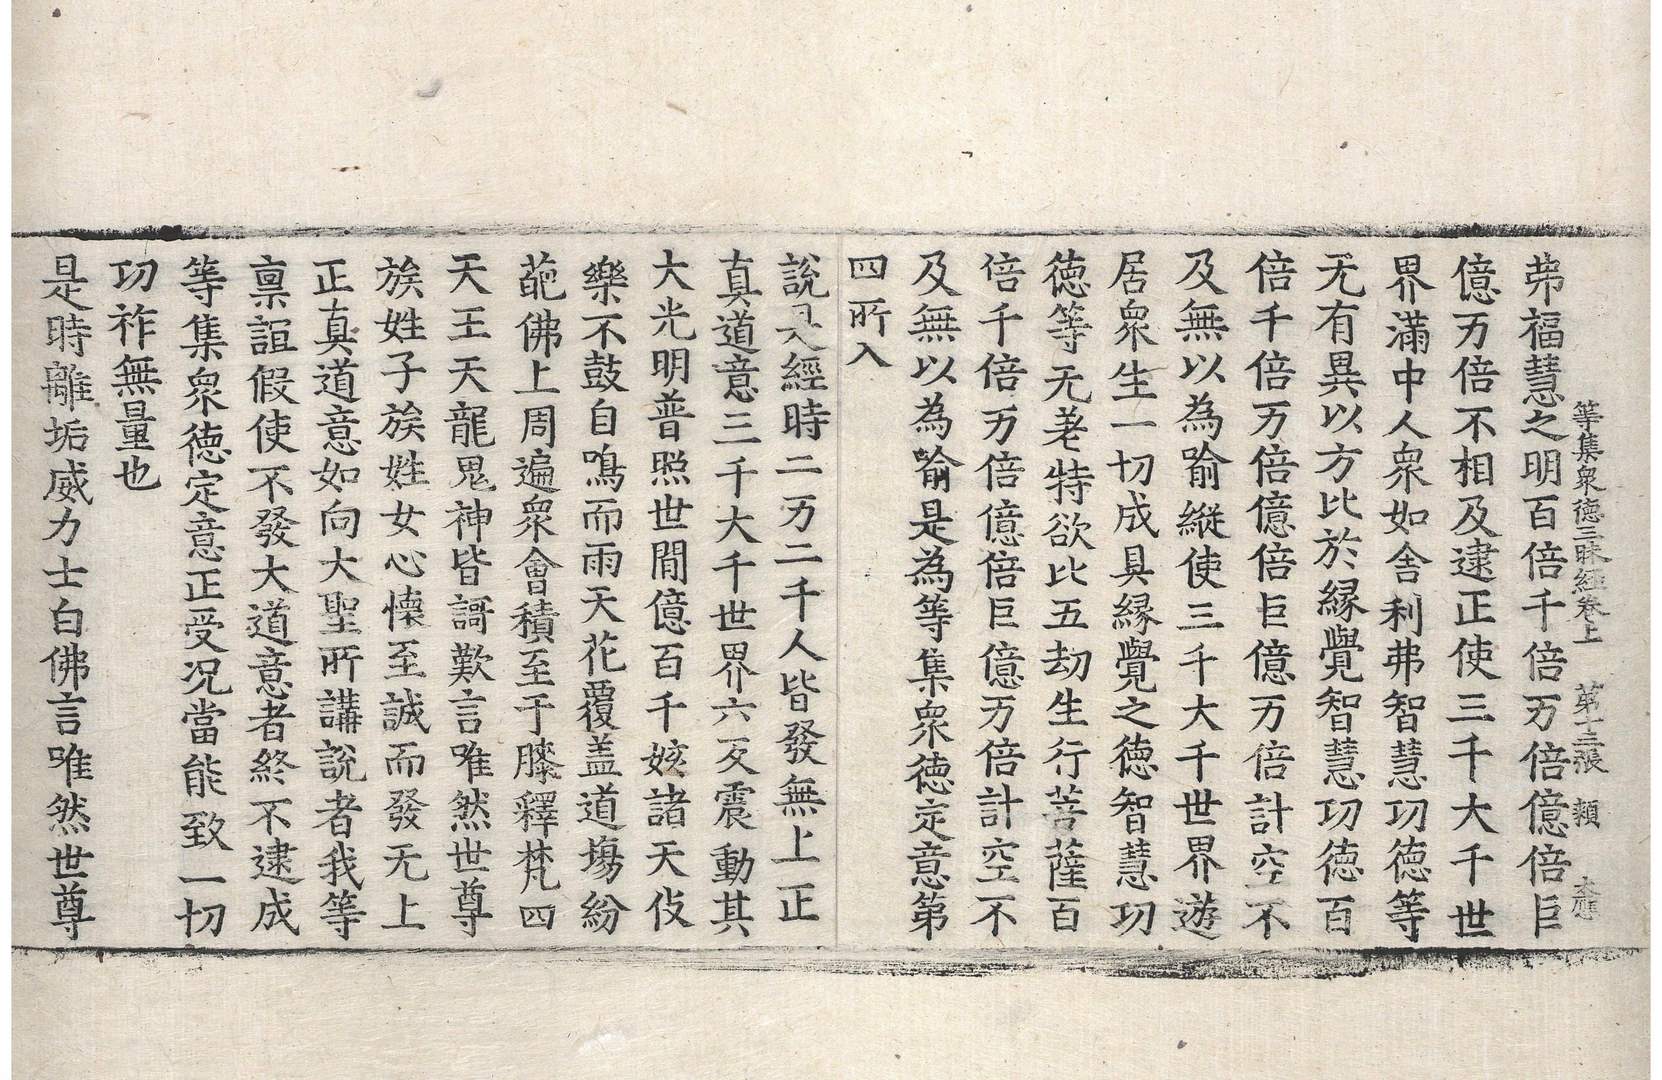 等集衆德三昧經卷上 第十三張 頬 大應
弗福慧之明百倍千倍万倍億倍巨
億万倍不相及逮正使三千大千世
界滿中人衆如舍利弗智慧功德等
无有異以方比於緣覺智慧功德百
倍千倍万倍億倍巨億万倍計空不
及無以為喻縱使三千大千世界遊
居衆生一切成具緣覺之德智慧功
德等无差特欲比五劫生行菩薩百
倍千倍万倍億倍巨億万倍計空不
及無以為喻是為等集衆德定意第
四所入
說是經時二万二千人皆發無上正
真道意三千大千世界六反震動其
大光明普照世間億百千姟諸天伎
樂不鼓自鳴而雨天花覆盖道場紛
葩佛上周遍衆會積至于膝釋梵四
天王天龍鬼神皆謌歎言唯然世尊
族姓子族姓女心懷至誠而發无上
正真道意如向大聖所講說者我等
稟誼假使不發大道意者終不逮成
等集衆德定意正受况當能致一切
功祚無量也
是時離垢威力士白佛言唯然世尊